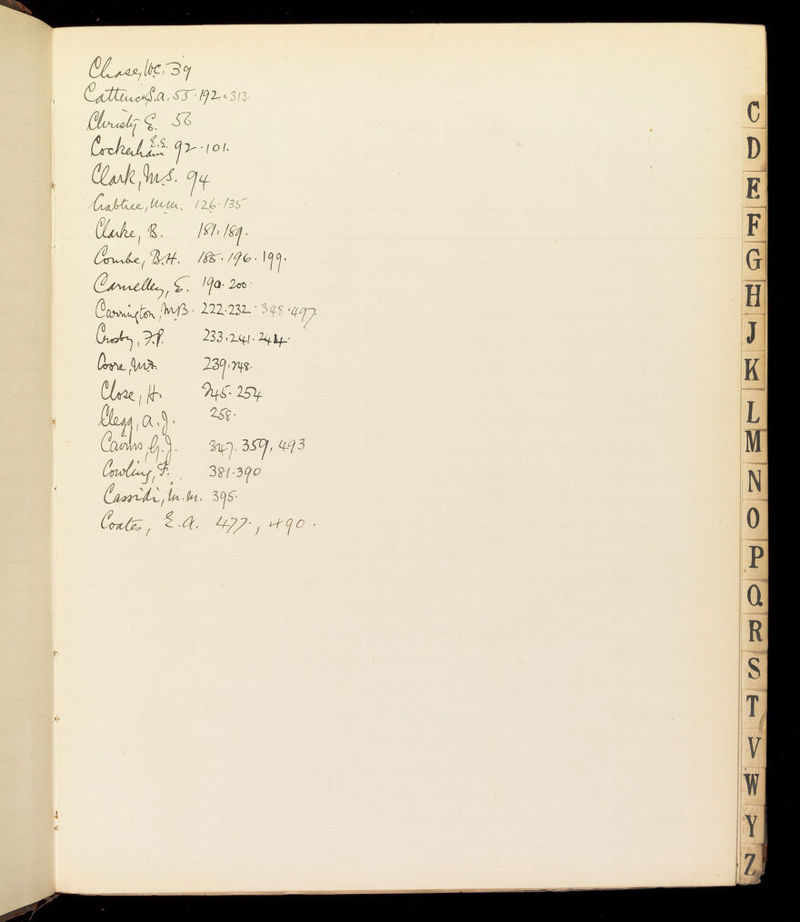 Chase, W.C. 39
S.A. 55 · 192 · 313 ·
Christy E. 56
Cockerham E.E. 92 · 101.
Clark, M.S. 94
Crabtree, M.M. 126 · 135
Clarke, B. 181. 189.
Combe, B.H. 185 · 196 · 199.
Camelley, E. 190 · 200 ·
Carrington, M.B. 222 · 232 · 348 · 497
Crosby, F.P. 233 · 241 · 244 ·
239 · 248 ·
Close, H. 245 · 254
Clegg, A.J. 258 ·
Cairns, G.J. 347. 359, 493
Cowling, F. 381 · 390
Cassidi, M.M. 395 ·
Coates, E.A. 477 ·, 490 ·
C
D
E
F
G
H
J
K
L
M
N
O
P
Q
R
S
T
V
W
Y
Z